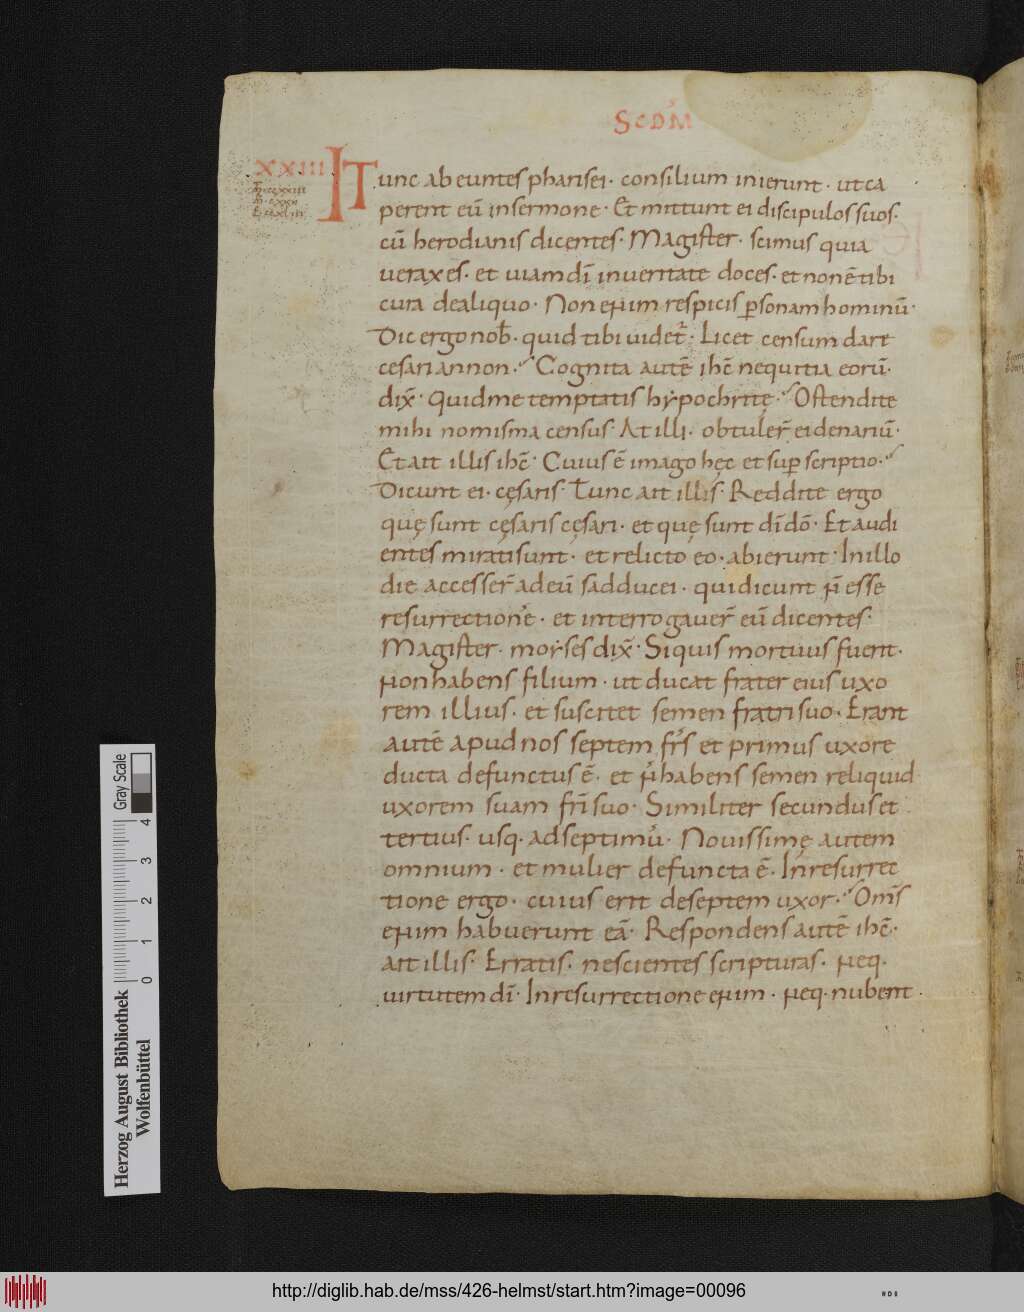 SCDM
XXIII
Tunc abeuntes pharisei · consilium inierunt · ut ca
perent eū in sermone · Et mittunt ei discipulos suos ·
cū herodianis dicentes · Magister · scimus quia
uerax es · et uiam dī in ueritate doces · et non ē tibi
cura de aliquo · Non enim respicis psonam hominū ·
Dic ergo nob · quid tibi uidet · Licet censum dare
cesari an non · Cognita autē ihc̄ nequitia eorū ·
dix̄ · Quid me temptatis hypochritę · Ostendite
mihi nomisma census · At illi · obtuler̄ ei denariū ·
Et ait illis ihc̄ · Cuius ē imago hęc et supscriptio ·
Dicunt ei · cęsaris · Tunc ait illis · Reddite ergo
quę sunt cęsaris cęsari · et quę sunt dī dō · Et audi
entes mirati sunt · et relicto eo · abierunt · In illo
die accesser̄ ad eū sadducei · qui dicunt n̄ esse
resurrectione · et interrogauer̄ eū dicentes ·
Magister · moyses dix̄ · Si quis mortuus fuerit ·
non habens filium · ut ducat frater eius uxo
rem illius · et suscitet semen fratri suo · Erant
autē apud nos septem frs et primus uxore
ducta defunctus ē · et n̄ habens semen reliquid
uxorem suam frī suo · Similiter secundus et
tertius · usq · ad septimū · Nouissimę autem
omnium · et mulier defuncta ē · In resurrec
tione ergo · cuius erit de septem uxor · Om̄s
enim habuerunt eā · Respondens autē ihc̄ ·
ait illis · Erratis · nescientes scripturas · neq ·
uirtutem dī · In resurrectione enim · neq · nubent ·
Herzog August Bibliothek
Wolfenbüttel
0 1 2 3 4
Gray Scale
http://diglib.hab.de/mss/426-helmst/start.htm?image=00096